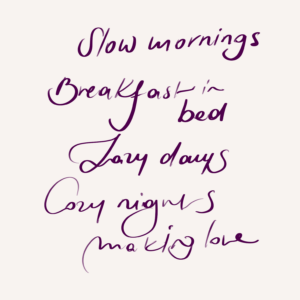 Slow mornings
Breakfast in
bed
Lazy days
Cozy nights
making love